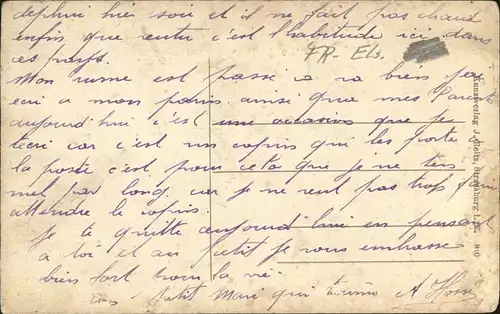 depuis hier soir et il ne fait pas chaud
enfin que veux tu c'est l'habitude ici dans
ces pays.
FR- Els.
Mon rume est passé ça va bien pas
a mon parin ainsi que mes Parents
aujourd'hui c'est une occasion que je
car c'est un copin qui les porte
la poste c'est pour cela que je ne t'en
met pas long car je ne veut pas trop faire
attendre le copin.
Je te quitte aujourd'hui en pensant
a toi et au petit je vous embrasse
bien fort pour la vie
ton petit Mari qui t'aime A
Kunstverlag J. Strassburg i. Els. 840